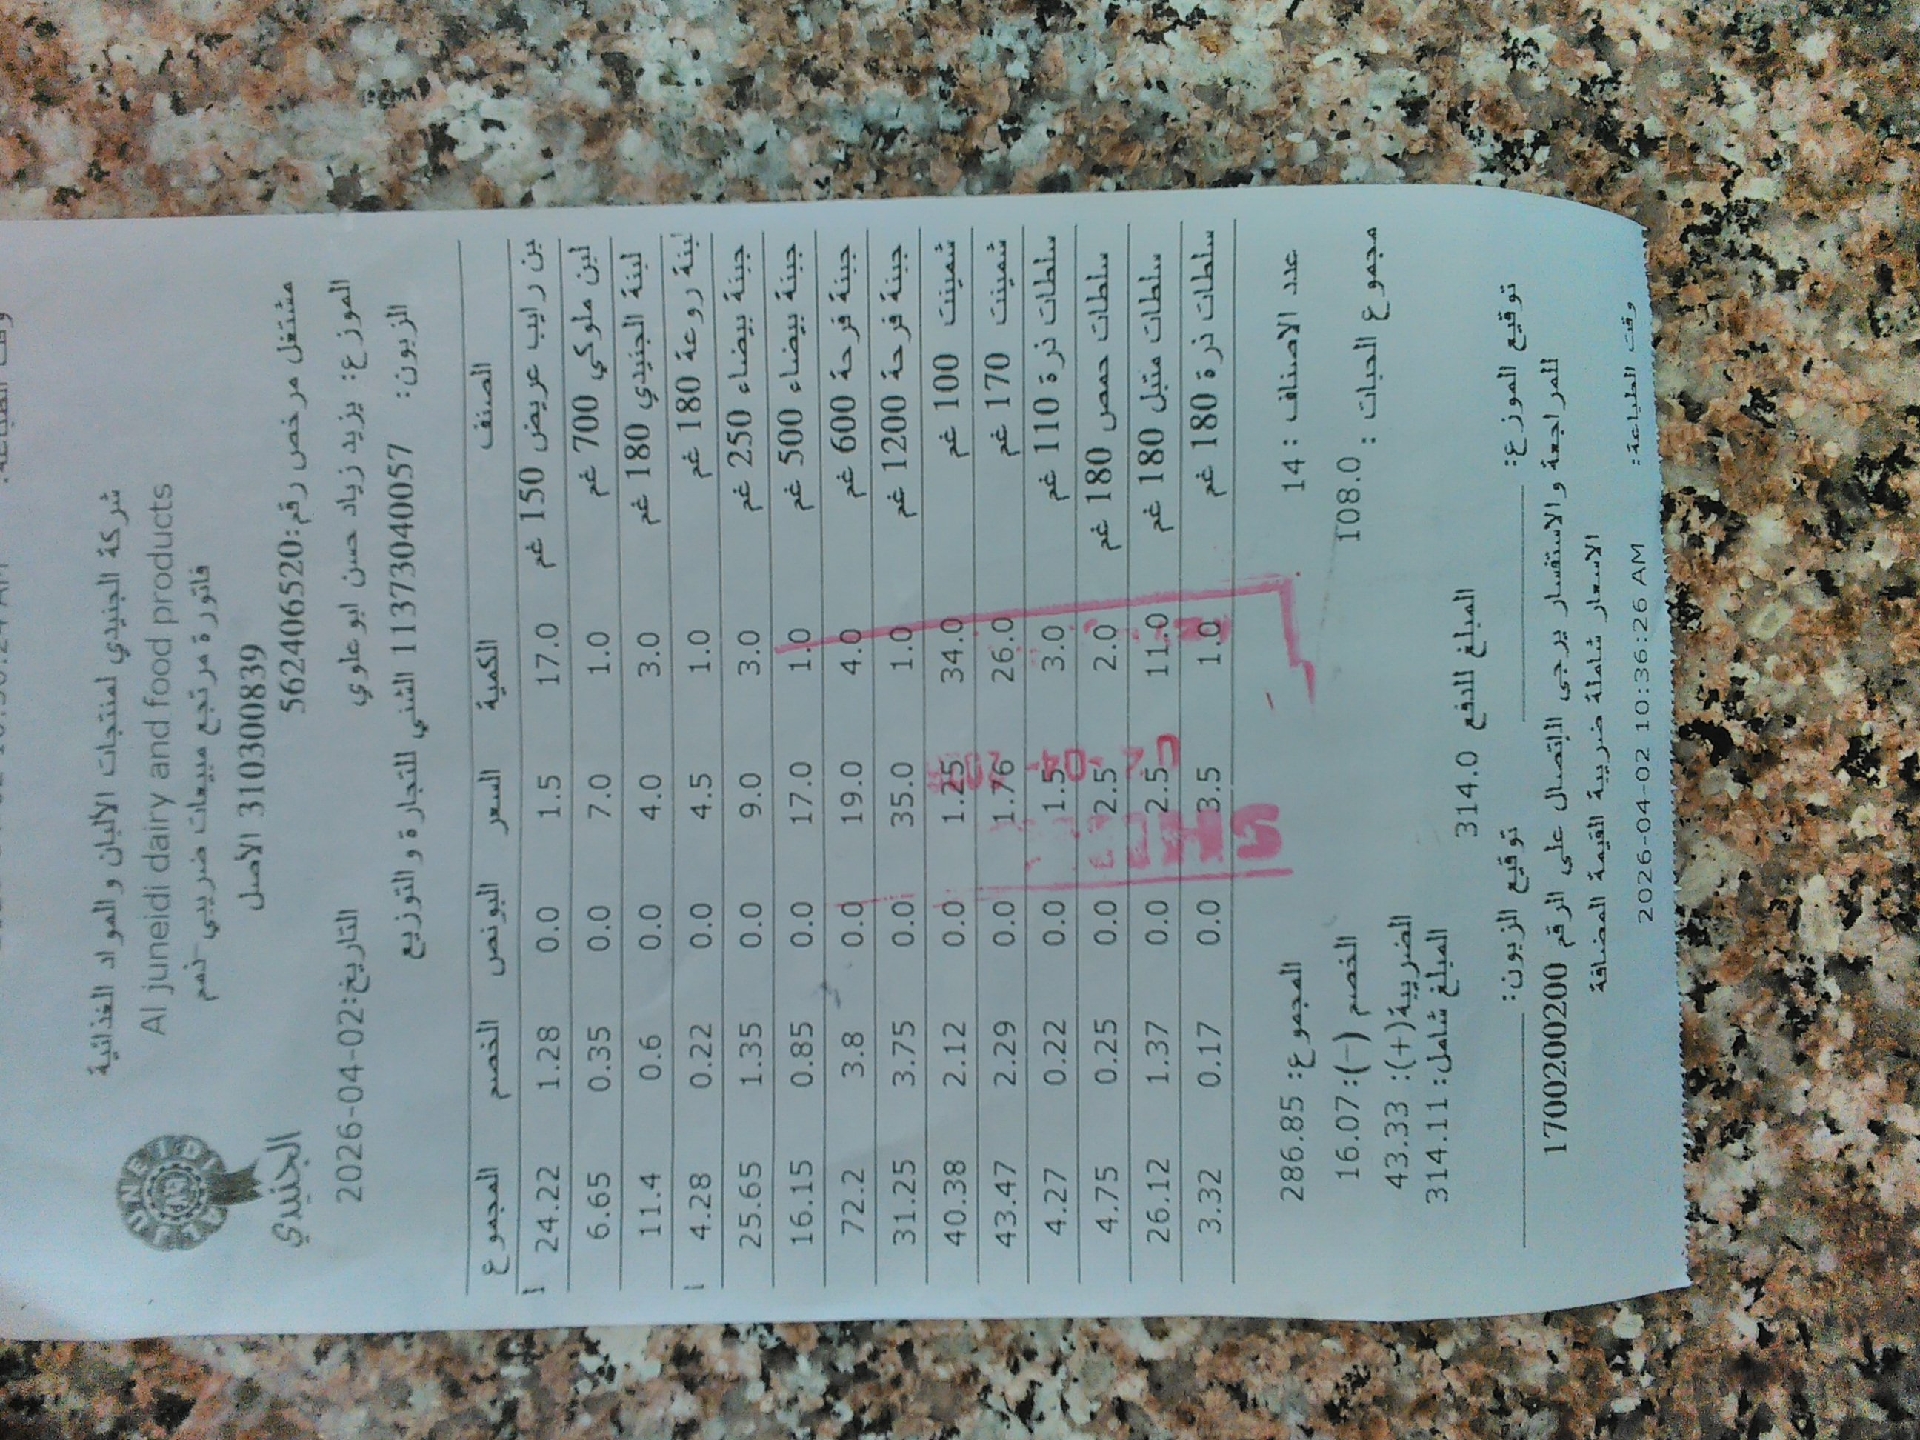 شركة الجنيدي لمنتجات الالبان والمواد الغذائية
Al juneidi dairy and food products
فاتورة مرتجع مبيعات ضريبي-نهم
الاصل 3103000839
JUNEIDI
الجنيدي
مشتغل مرخص رقم:562406520
الموزع: يزيد زياد حسن ابو علوي التاريخ:2026-04-02
الزبون: 11373040057 الشني للتجارة والتوزيع
الصنف الكمية السعر البونص الخصم المجموع
بن رايب عريض 150 غم 17.0 1.5 0.0 1.28 24.22 ا
لبن ملوكي 700 غم 1.0 7.0 0.0 0.35 6.65
لبنة الجنيدي 180 غم 3.0 4.0 0.0 0.6 11.4
لبنة روعة 180 غم 1.0 4.5 0.0 0.22 4.28 ا
جبنة بيضاء 250 غم 3.0 9.0 0.0 1.35 25.65
جبنة بيضاء 500 غم 1.0 17.0 0.0 0.85 16.15
جبنة فرحة 600 غم 4.0 19.0 0.0 3.8 72.2
جبنة فرحة 1200 غم 1.0 35.0 0.0 3.75 31.25
شمينت 100 غم 34.0 1.25 0.0 2.12 40.38
شمينت 170 غم 26.0 1.76 0.0 2.29 43.47
سلطات ذرة 110 غم 3.0 1.5 0.0 0.22 4.27
سلطات حمص 180 غم 2.0 2.5 0.0 0.25 4.75
سلطات متبل 180 غم 11.0 2.5 0.0 1.37 26.12
سلطات ذرة 180 غم 1.0 3.5 0.0 0.17 3.32
عدد الاصناف : 14 المجموع: 286.85
مجموع الحبات : 108.0 الخصم (-): 16.07
الضريبة(+): 43.33
المبلغ للدفع 314.0 المبلغ شامل: 314.11
توقيع الموزع: توقيع الزبون:
للمراجعة والاستفسار يرجى الإتصال على الرقم 1700200200
الاسعار شاملة ضريبة القيمة المضافة
وقت الطباعة: 2026-04-02 10:36:26 AM